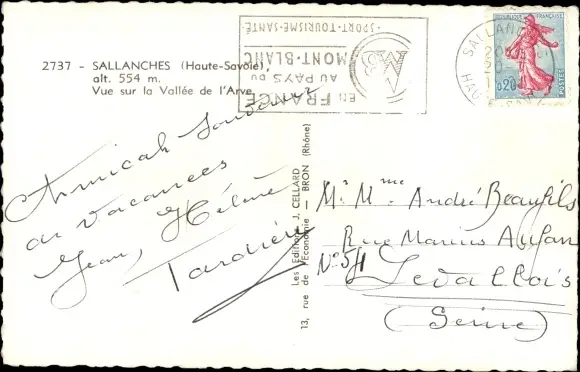 2737 - SALLANCHES (Haute-Savoie)
alt. 554 m.
Vue sur la Vallée de l'Arve
Amicals Souvenir
de vacances
Jean, Hélène
Tardieu
Les Editions J. CELLARD
13, rue de l'Economie — BRON (Rhône)
EN FRANCE
AU PAYS DU
MONT-BLANC
·SPORT·TOURISME·SANTÉ·
SALLANCHES
REPUBLIQUE FRANÇAISE
0,20
POSTES
Mr Mme André Beaufils
Rue Marius Aufan
N° 54
Levallois
(Seine)